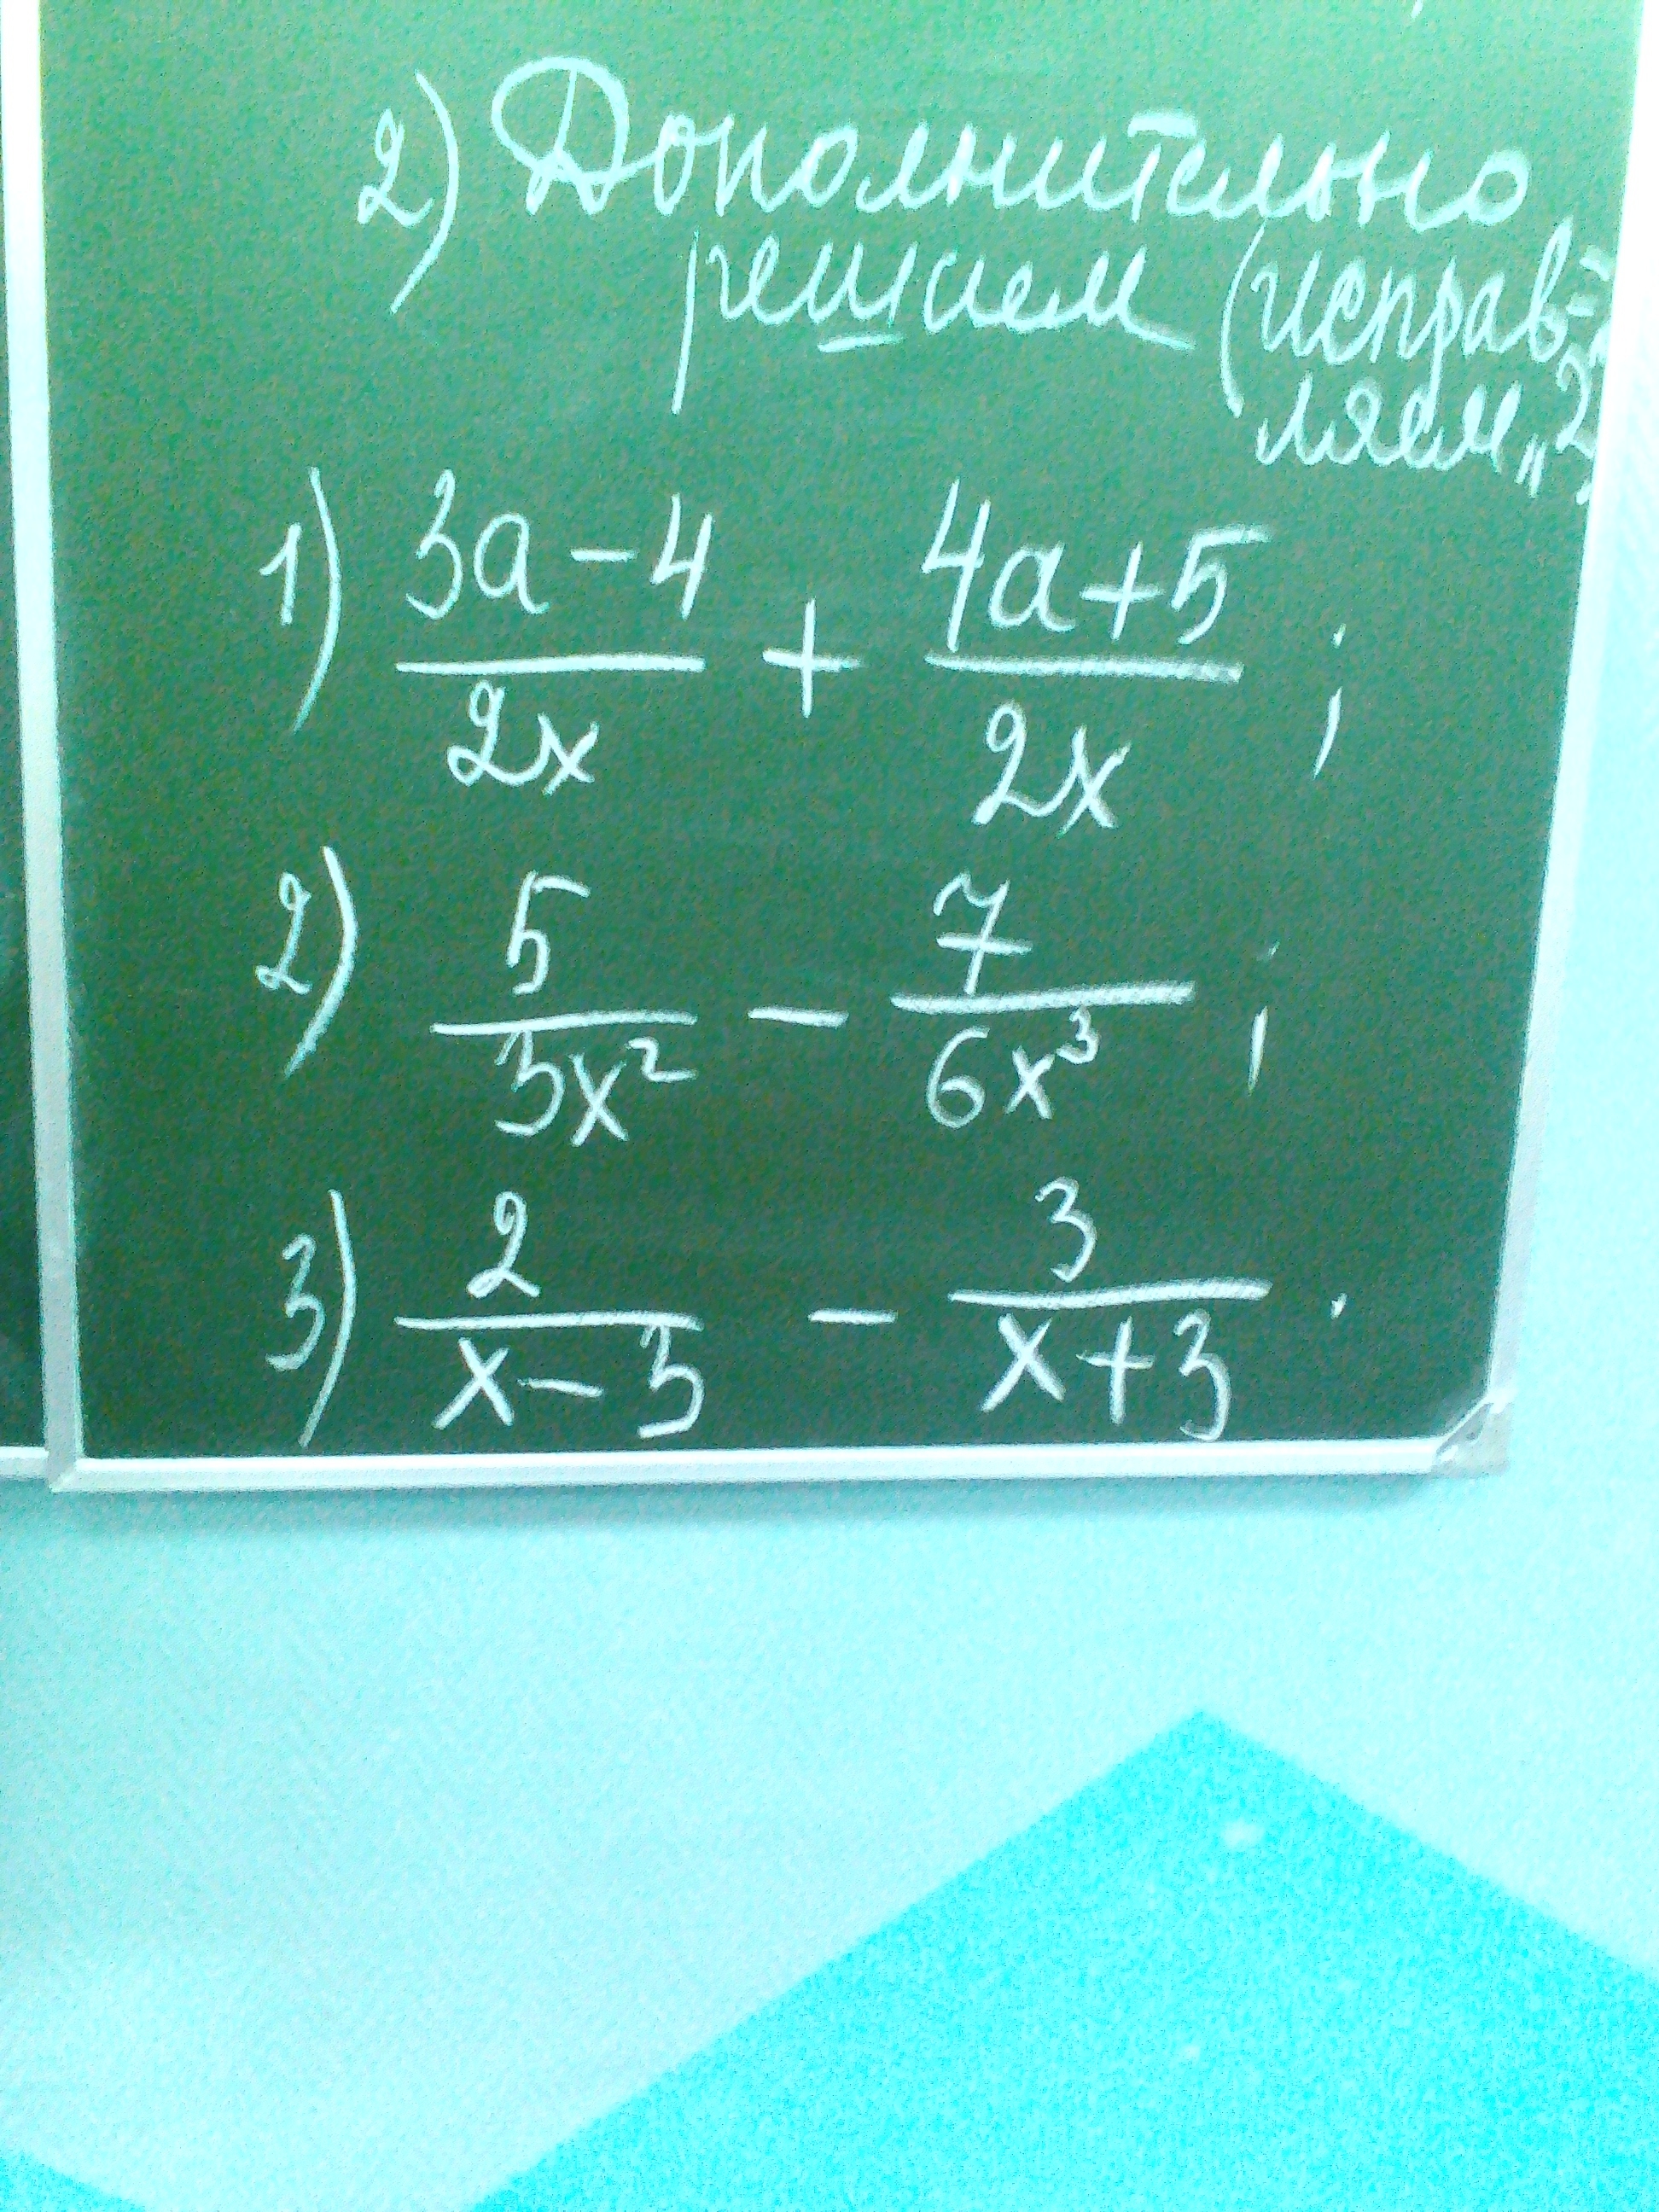 2) Дополнительно
решаем (исправ-
ляем „2
1) \frac{3a-4}{2x} + \frac{4a+5}{2x} ;
2) \frac{5}{3x^2} - \frac{7}{6x^3} ;
3) \frac{2}{x-3} - \frac{3}{x+3} .